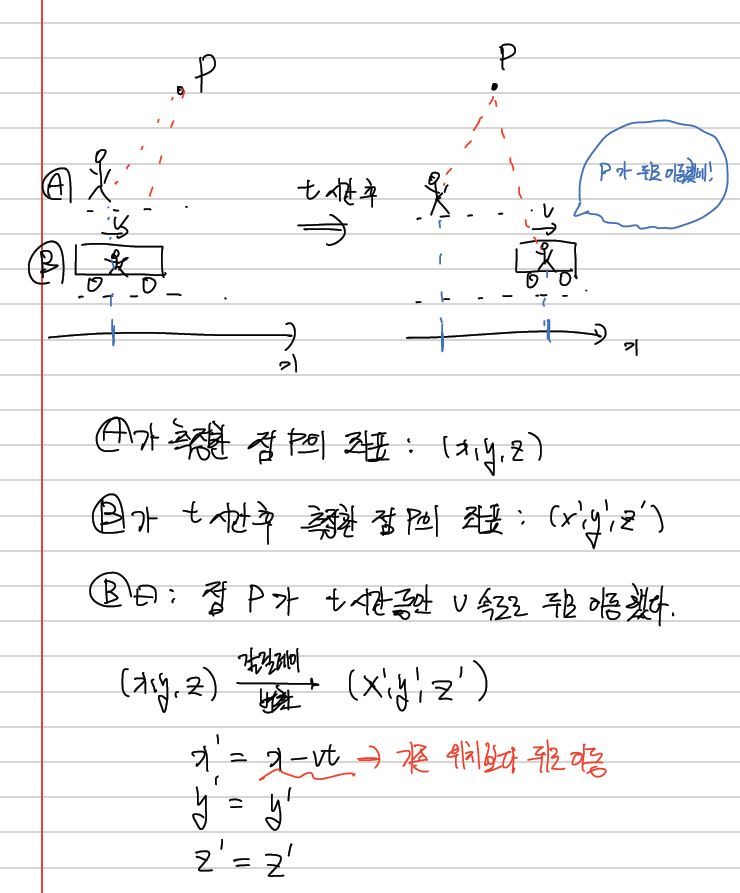 P
P
Ⓐ
t 시간 후
P가 뒤로 이동했네!
v
v
Ⓑ
x
x
Ⓐ가 측정한 점 P의 좌표 : (x, y, z)
Ⓑ가 t 시간 후 측정한 점 P의 좌표 : (x', y', z')
Ⓑ 曰 : 점 P가 t 시간 동안 v 속도로 뒤로 이동했다.
(x, y, z) 갈릴레이 변환 → (x', y', z')
x' = x - vt → 기존 위치보다 뒤로 이동
y' = y'
z' = z'